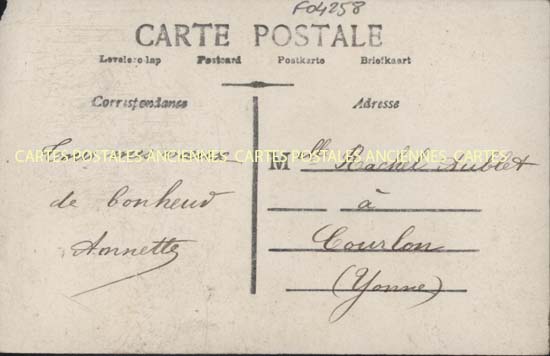 F04258
CARTE POSTALE
Levelezo lap Postcard Postkarte Briefkaart
Correspondance
Adresse
CARTES POSTALES ANCIENNES CARTES POSTALES ANCIENNES CARTES
de bonheur
Annette
Mlle Rachel Aublet
à
Courlon
(Yonne)